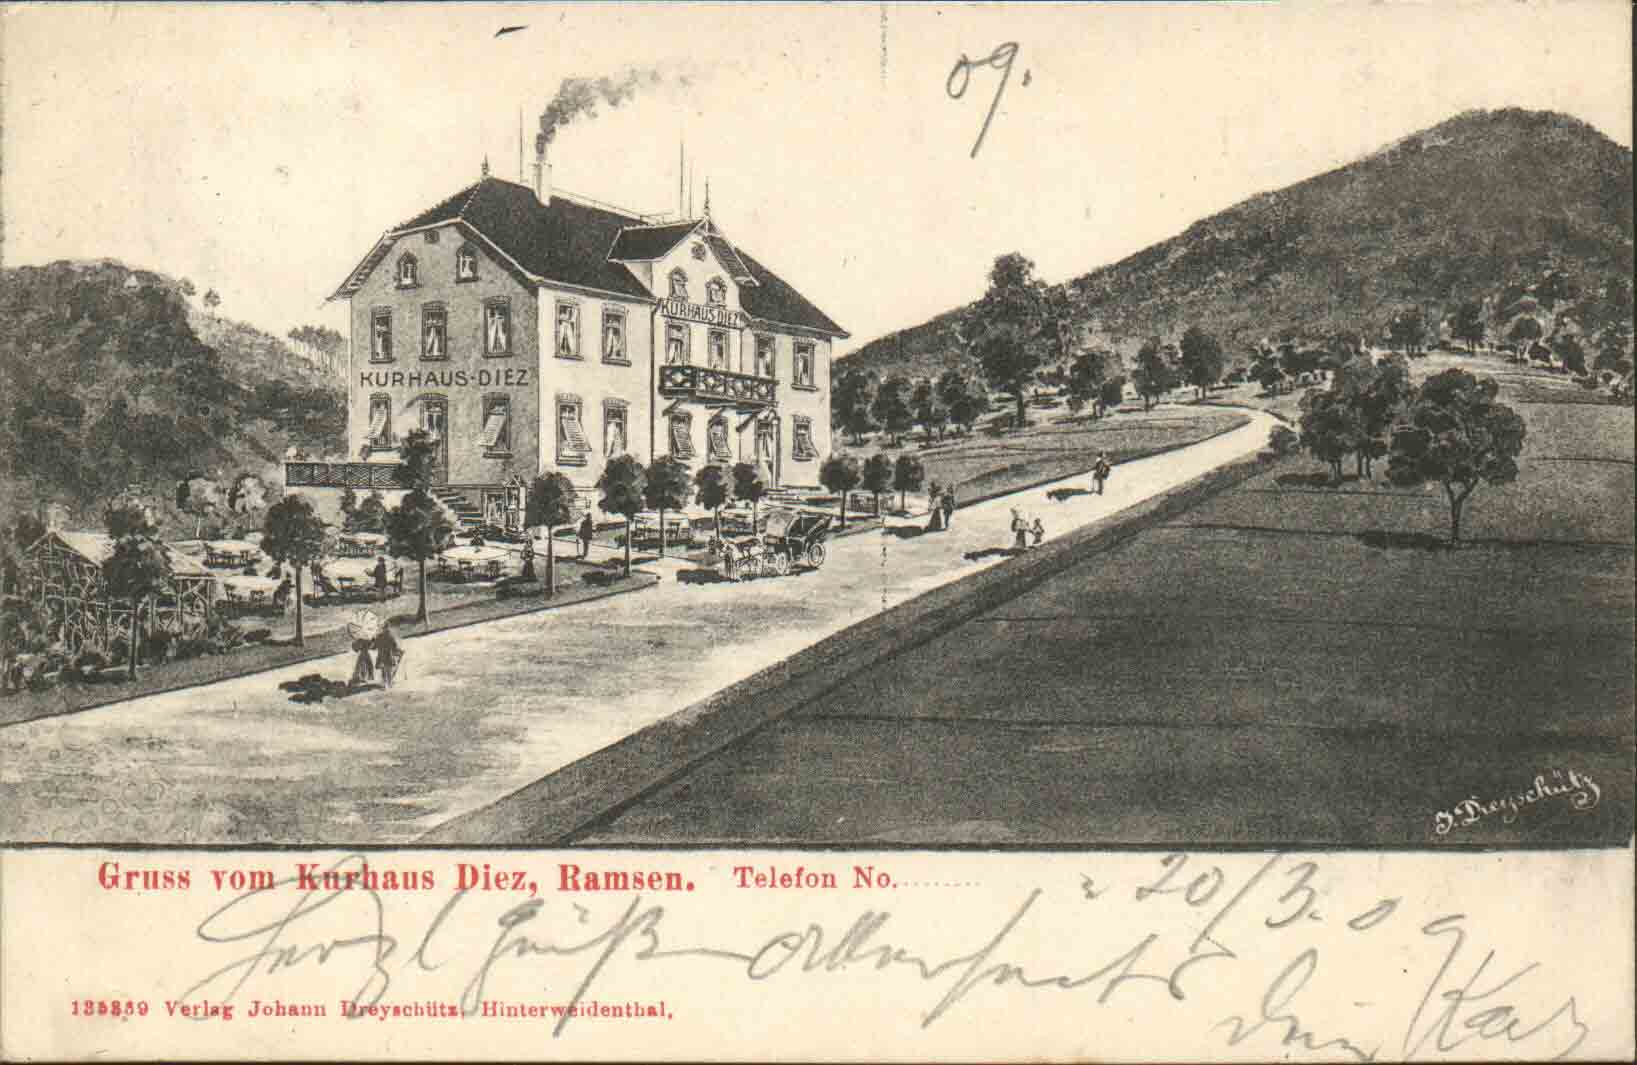 09.
KURHAUS DIEZ
KURHAUS-DIEZ
J. Dreyschütz
Gruss vom Kurhaus Diez, Ramsen. Telefon No. ..........
20/3. 09
Herzl Grüß allerseits
Dein Karl
135839 Verlag Johann Dreyschütz, Hinterweidenthal.